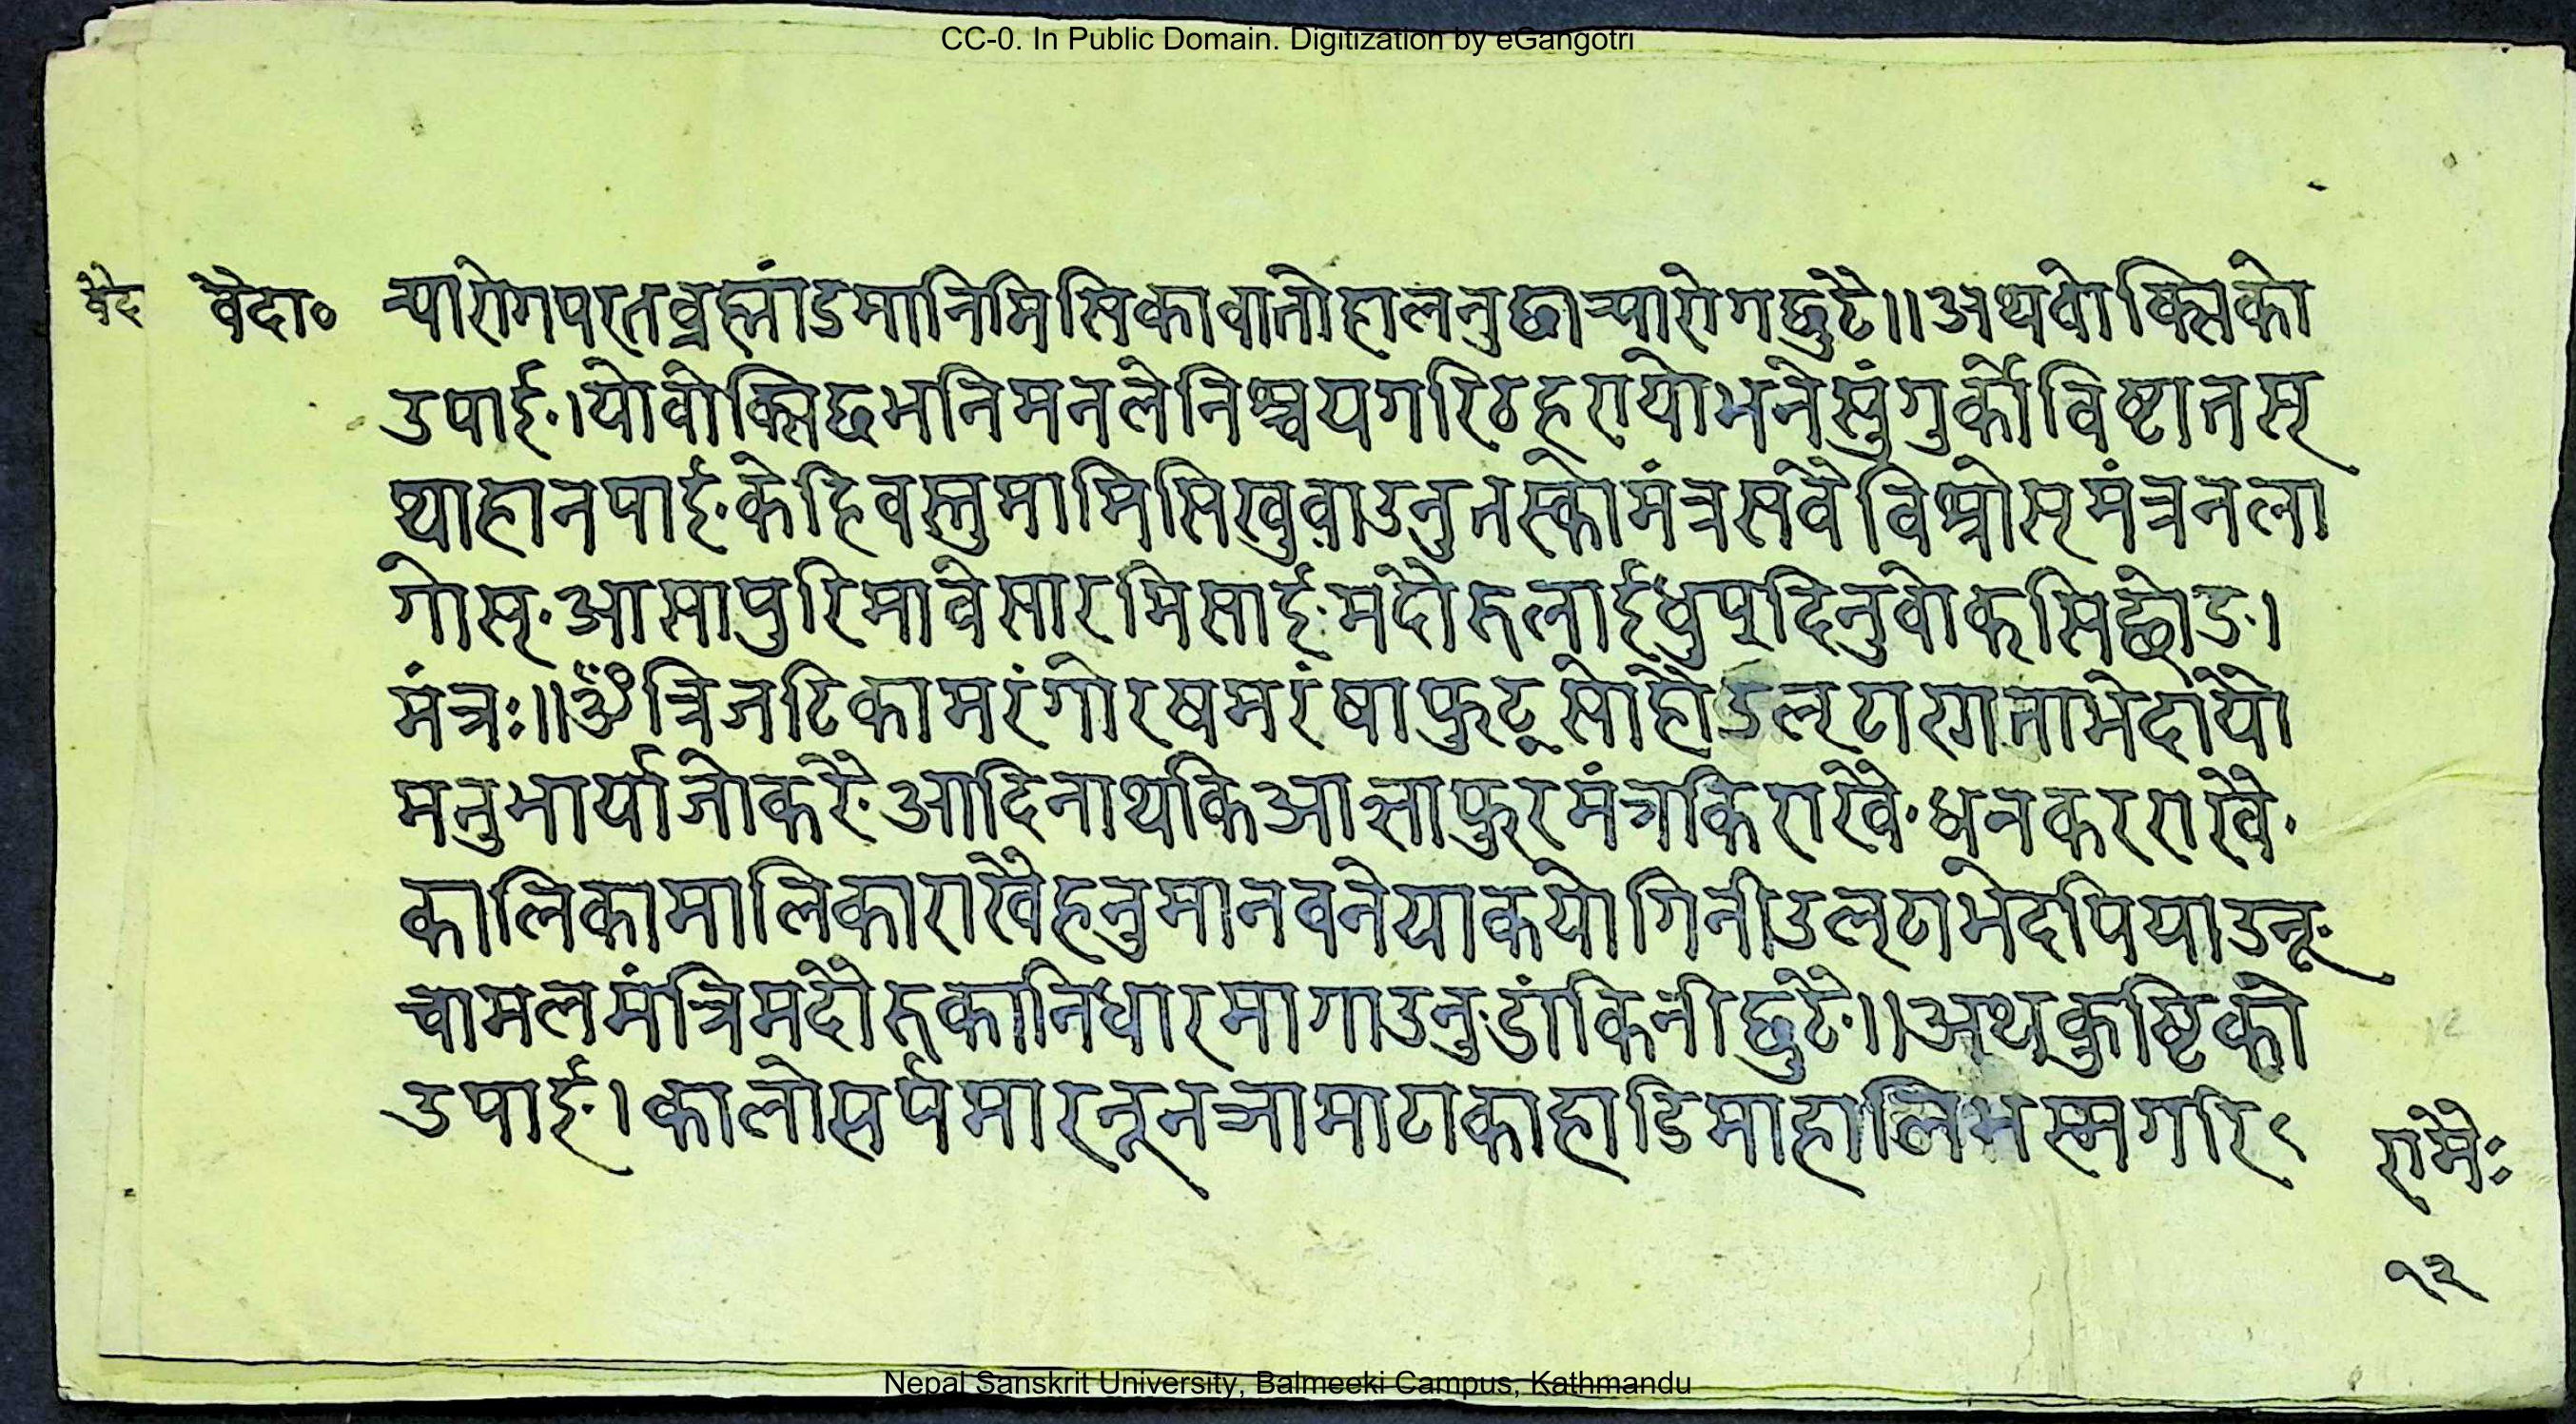 CC-0. In Public Domain. Digitization by eGangotri
वेद वेदा० न्यारोगपरतव्रह्मांडमानिमिसिकावातोहालनुछान्यारोगछुटै॥अथवोक्सिको
उपाई·।योवोक्सिछभनिमनलेनिश्चयगरिठहरायोभनेसुंगुर्कोविष्टातस्
थाहानपाई·केहिवस्तुमामिसिखुवाउनुतस्कोमंत्रसवैविश्रोस्मंत्रनला
गोस्·आसापुरिमावेसारमिसाई·मदौरुलाईधुप्दिनुवोकसिछोड·।
मंत्रः॥ॐत्रिजटिकामरंगोरषमरंषाफुट्सोहोउल्टा
मनुभार्याजोकरै·आदिनाथकिआज्ञाफुरमंत्रकिराखै·धनकरराखै·
कालिकामालिकाराखैहनुमानवनेयाकयोगिनीउल्टाभेदपियाउनू·
चामलमंत्रिमदौरुकानिधारमागाउनु·डांकिनीछुटै·॥अथ्कुष्टिको
उपाई·।कालोसर्पमारनूनञामाटाकाहाडिमाहालिभस्मगरि
रामेः
१२
Nepal Sanskrit University, Balmeeki Campus, Kathmandu